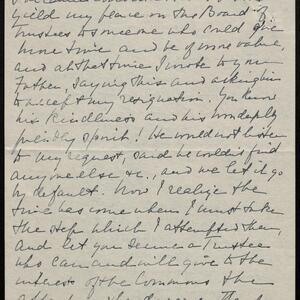 yield my place on the Board of
Trustees to someone who could give
more time and be of more value,
and at that time I wrote to your
Father, saying this and asking him
to accept my resignation. You know
his kindliness and his own deeply
friendly spirit! He would not listen
to my request, said he would find
anyone else &c., and we let it go
by default. Now I realize the
time has come when I must take
the step which I attempted then,
and let you secure a Trustee
who can and will give to the
interests of the Commons the